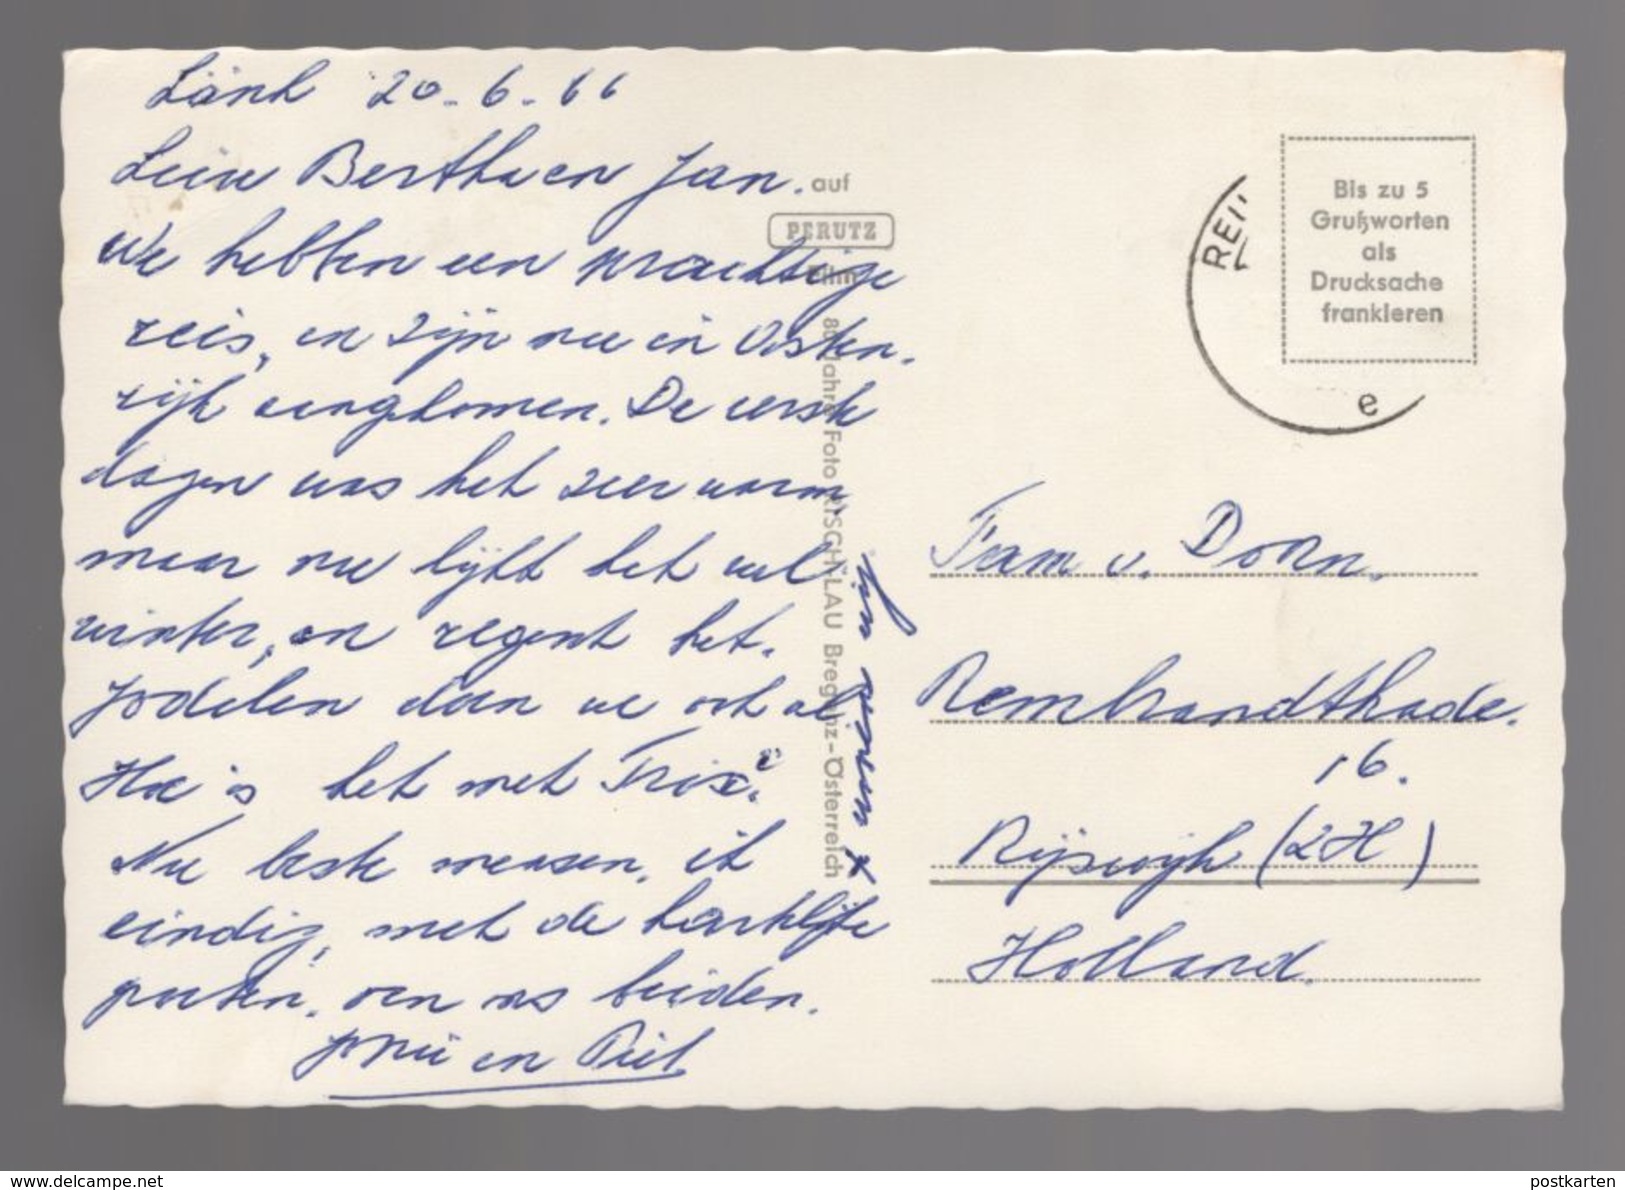 Länk 20-6-66
Leiw Bertha en Jan.
We hebben een prachtige
reis, en zijn nu in Oosten.
rijk aangekomen. De eerste
dagen was het zeer warm,
maar nu lijkt het wel
winter, en regent het.
Jodelen doen we ook al.
Hoe is het met Trix?
Nu beste mensen, ik
eindig, met de hartelijke
groeten. van ons beiden.
en Piet
auf
PERUTZ
Film
80 Jahre Foto RISCH-LAU Bregenz-Österreich
REU
e
Bis zu 5
Grußworten
als
Drucksache
frankieren
Fam v. Doorn.
Rembrandtkade.
16.
Rijswijk (ZH)
Holland.
delcampe.net
postkarten